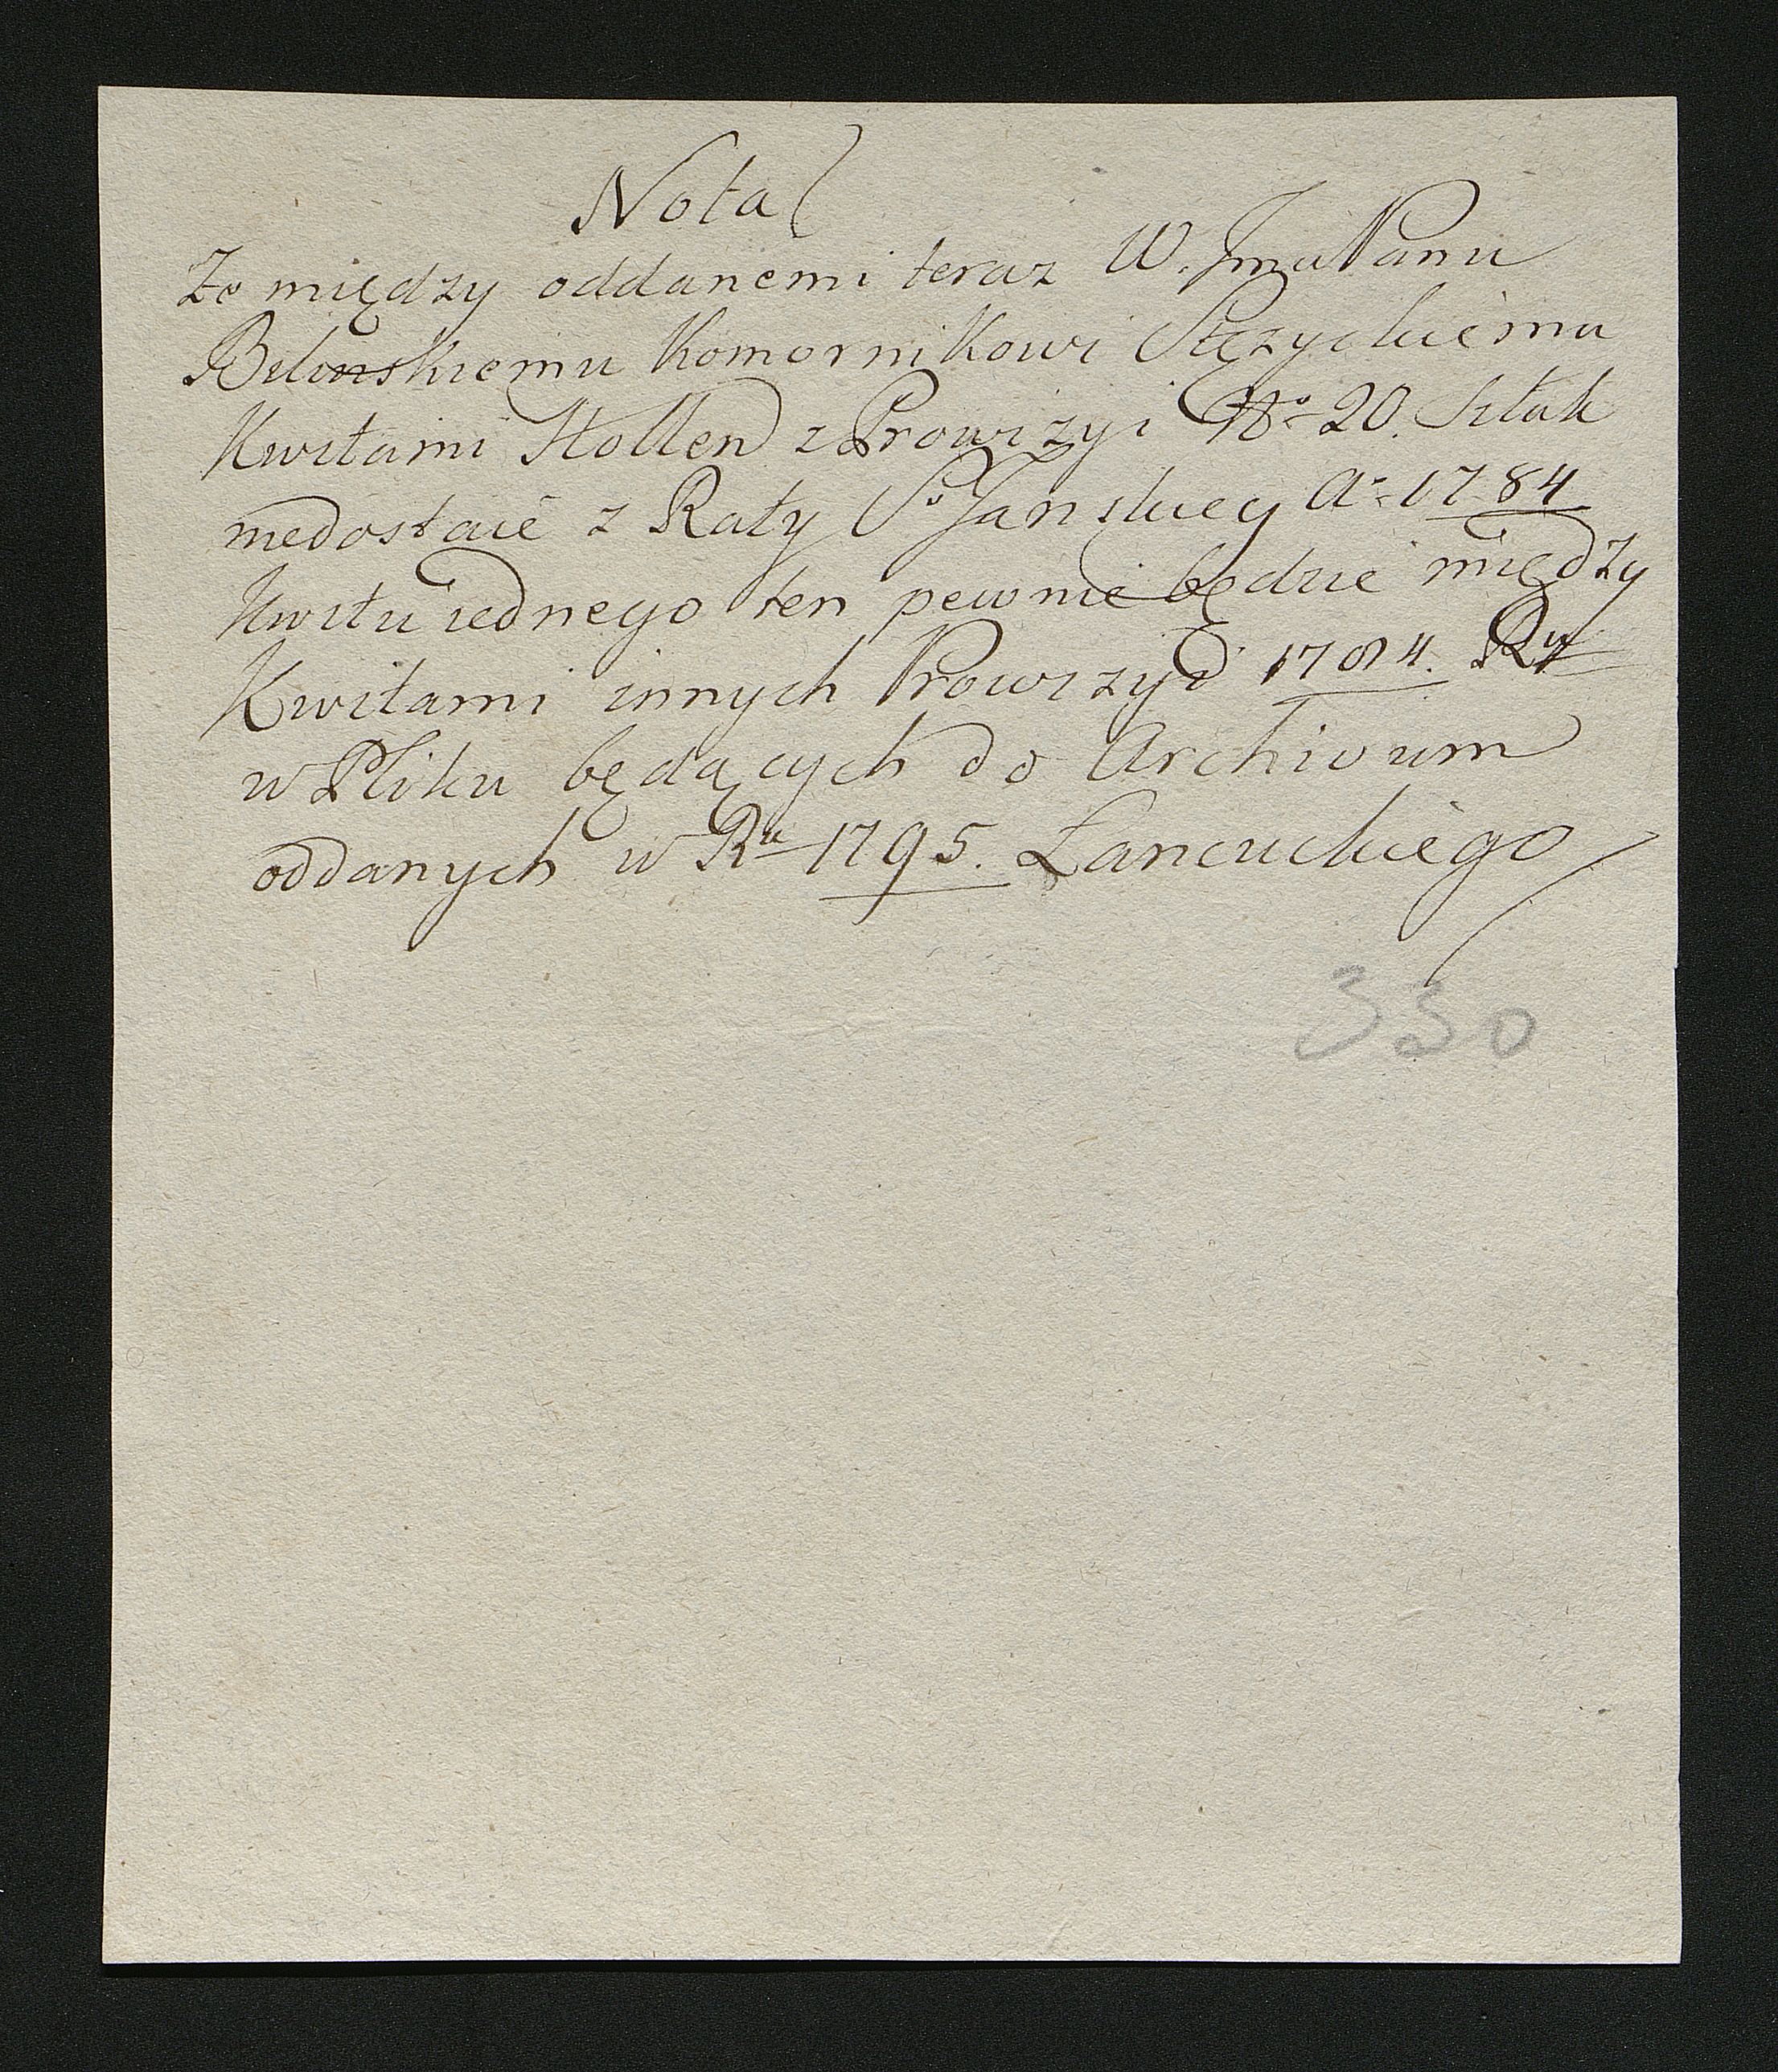 Nota
Że między oddanemi teraz W. Jmu Panu
Bilinskiemu Komornikowi Stężyckiemu
Kwitami Hollen z Prowizyi No 20. Sztuk
niedostaie z Raty So Janskiey Ao 1784
Kwitu iednego ten pewnie będzie między
Kwitami innych Prowizyi 1784. Ru
w Pliku będących do Archivum
oddanych w Ru 1795. Łancuckiego
330